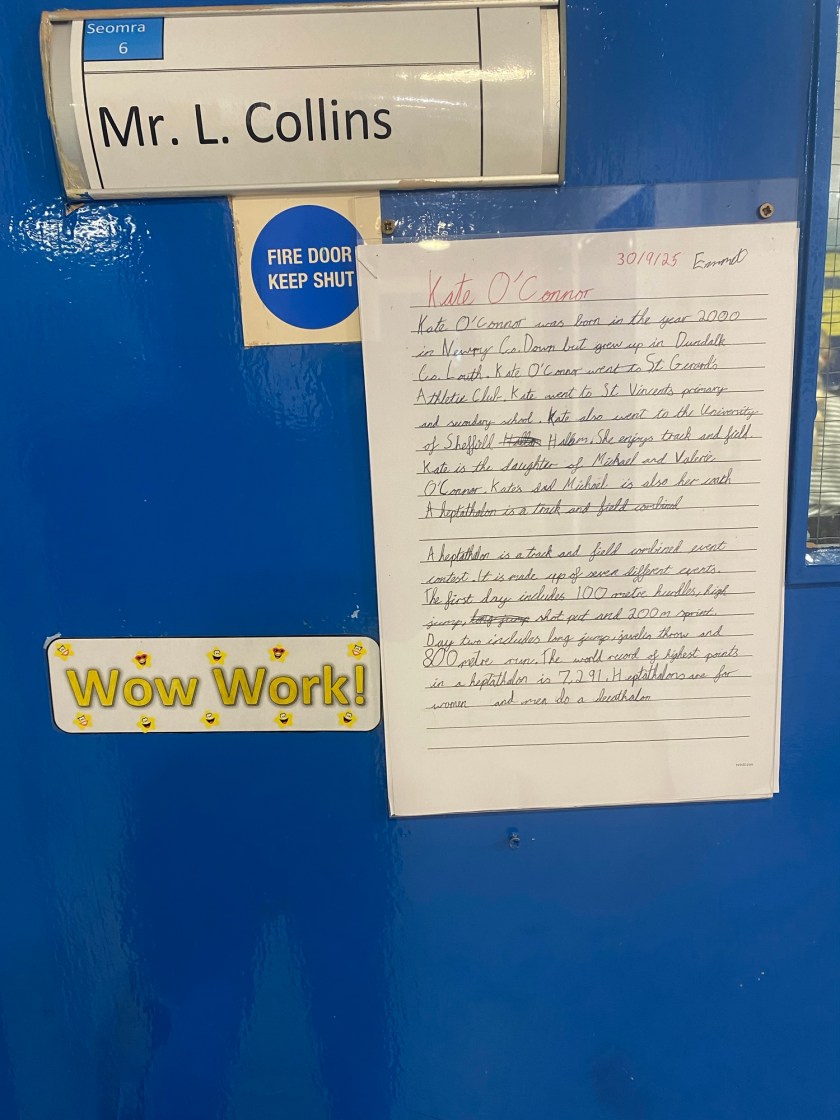 Seomra
6
Mr. L. Collins
FIRE DOOR
KEEP SHUT
30/9/25 Emmet
Kate O'Connor
Kate O'Connor was born in the year 2000
in Newry Co. Down but grew up in Dundalk
Co. Louth. Kate O'Connor went to St Gerard's
Athletic Club. Kate went to St Vincent's primary
and secondary school. Kate also went to the University
of Sheffield Hallam. She enjoys track and field.
Kate is the daughter of Michael and Valerie
O'Connor. Kate's dad Michael is also her coach
A heptathalon is a track and field combined
A heptathalon is a track and field combined event
contest. It is made up of seven different events.
The first day includes 100 metre hurdles, high
jump, long jump shot put and 200m sprint.
Day two includes long jump, javelin throw and
800 metre run. The world record of highest points
in a heptathalon is 7,291. Heptathalons are for
women and men do a decathalon
Wow Work!